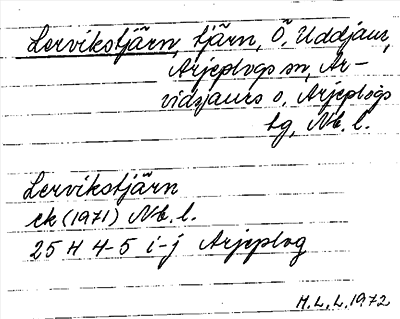 Lervikstjärn, tjärn, Ö. Uddjaur,
Arjeplogs sn, Ar-
vidsjaurs o. Arjeplogs
tg, Nb. l.
Lervikstjärn
ek (1971) Nb. l.
25 H 4-5 i-j Arjeplog
H. L. L. 1972